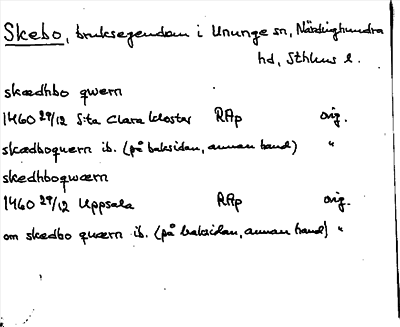 Skebo, bruksegendom i Ununge sn, Närdinghundra
hd, Sthlms l.
skædhbo qwern
1460 29/12 S:ta Clara kloster RAp orig.
skædboquern ib. (på baksidan, annan hand) "
skedhboqwærn
1460 29/12 Uppsala RAp orig.
om skedbo quærn ib. (på baksidan, annan hand) "